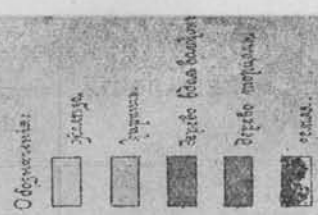 Обозначенія:
Желѣзо.
Кирпичъ.
Дерево вдоль волокон
Дерево торцомъ.